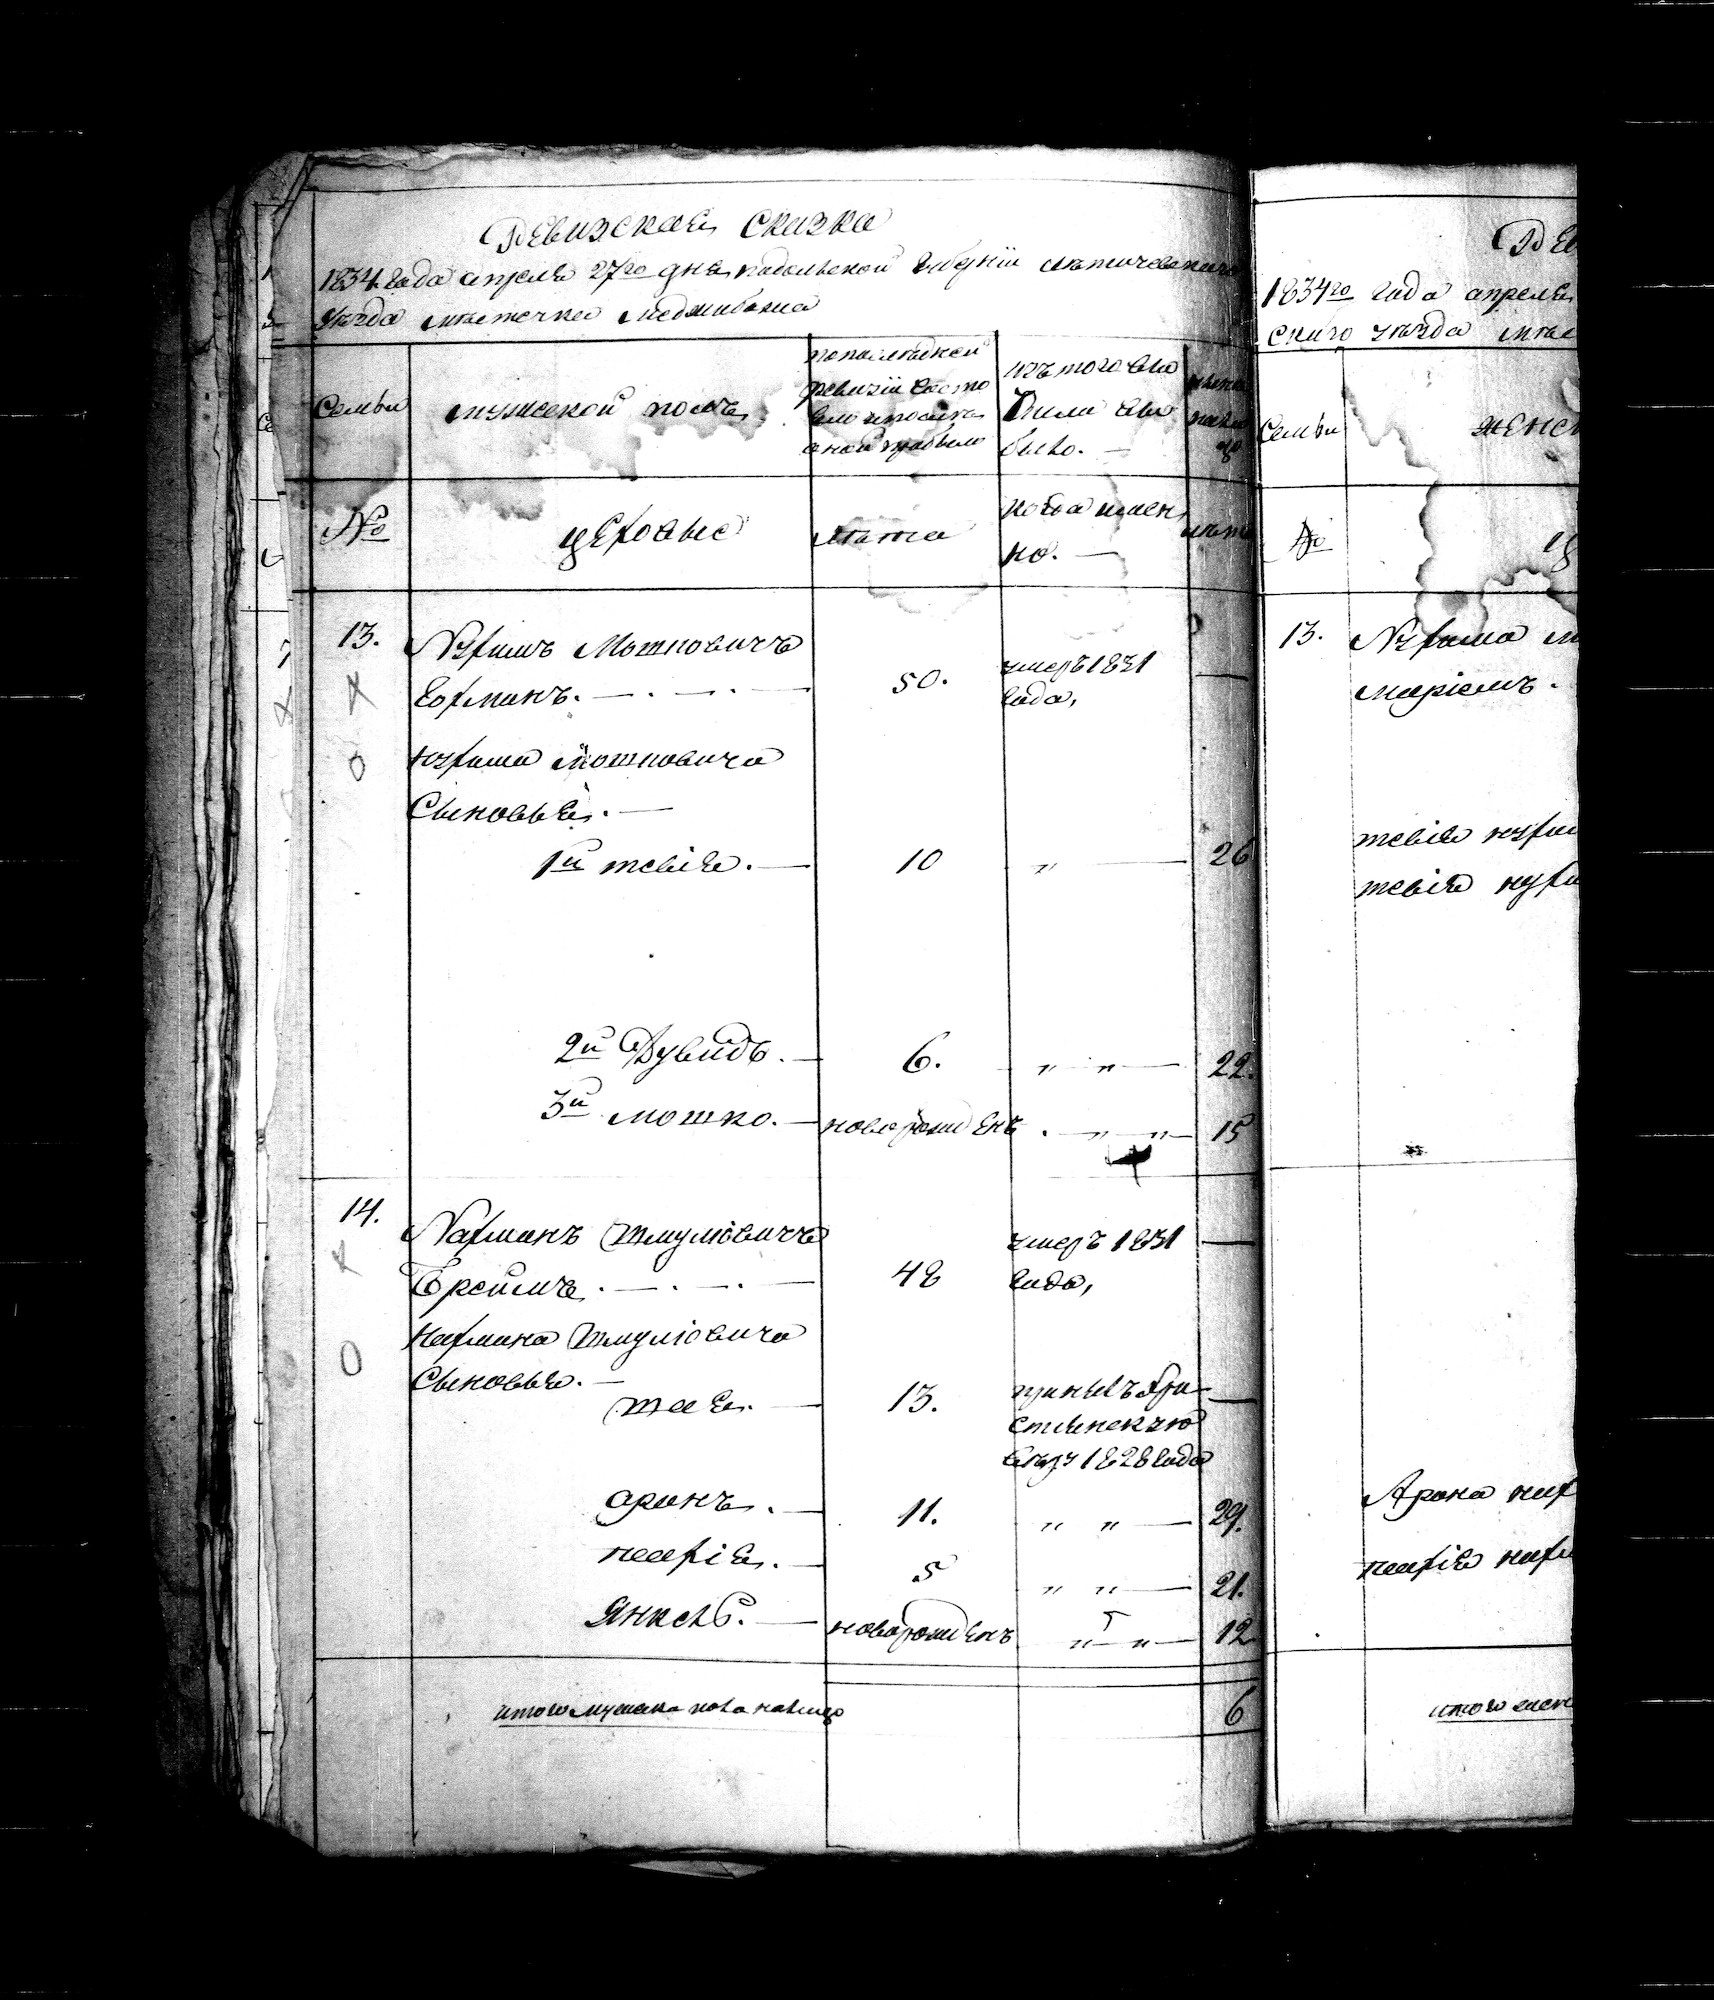 Ревизская сказка
1834 года апреля 27го дня подольской губернiи летичевскаго
уезда местечка меджибожа
Семьи
мужеской полъ
по последней
ревизiи состо
яло и после
оной прибыло
изъ того чис
ла выбыло.
ныне
на ли
цо
№
евреи
лета
когда имен
но.
лета
13.
Нухимъ Мошковичъ
Гофманъ.
50.
умеръ 1831
года,
Нухима Мошковича
Сыновья.
1й тевiя.
10
"
26
2й Дувидъ.
6.
" "
22.
3й мошко.
новорожденъ
" "
15
14.
Нахманъ Шмулiовичъ
48
умеръ 1831
года,
Нахмана Шмулiовича
Сыновья.
шая.
13.
принялъ хри
стиянскую
веру 1828 года
аронъ.
11.
" "
29.
5
" "
21.
Янкель.
новорожденъ
" "
12
итого мужска пола налицо
6
Рев
1834го года апреля
скаго уезда мес
Семьи
женс
№
13.
Нухима м
марiемъ.
тевiя нухи
тевiя нухи
Арона нах
итого женс